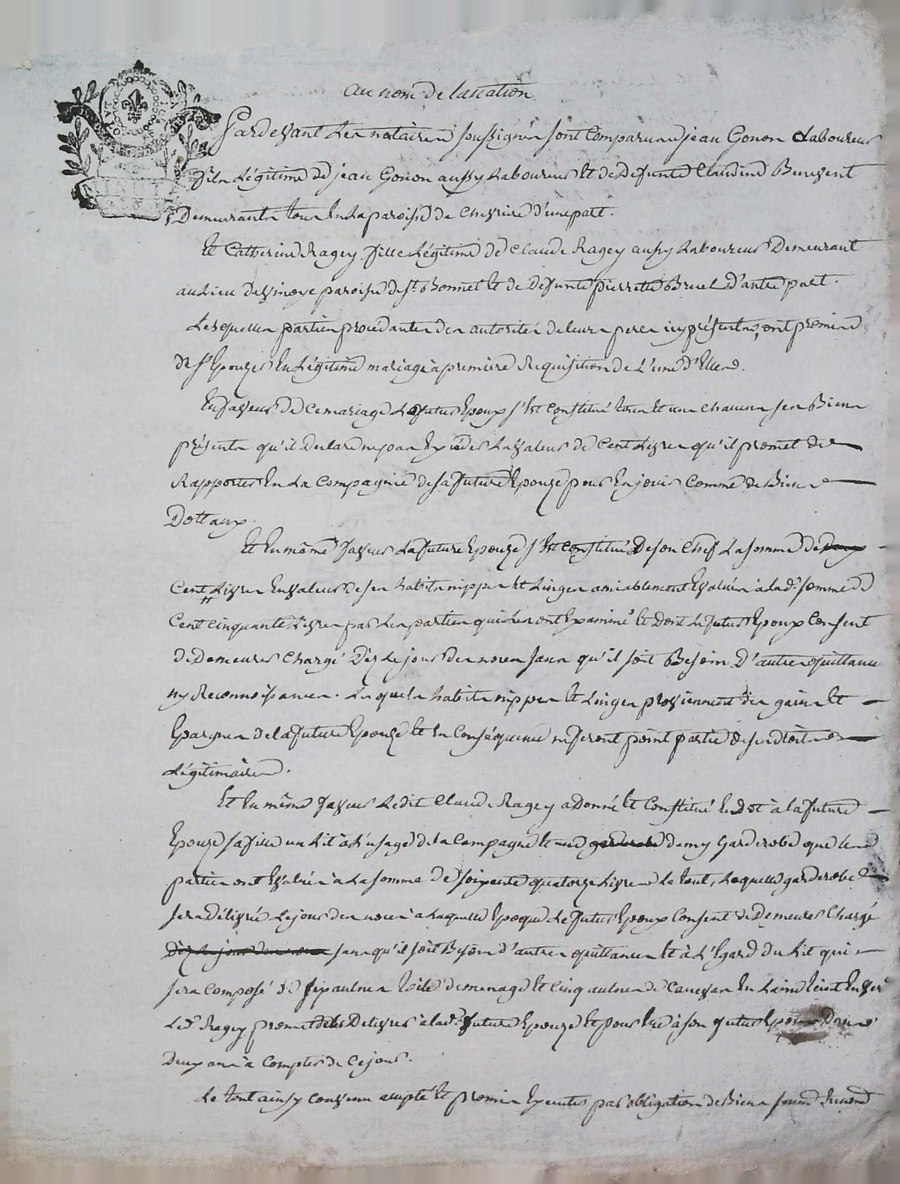 au nom de la nation
Pardevant Les notaires soussignés sont Comparus jean Gonon Laboureur
fils Légitime de jean Gonon aussy Laboureur et de Defunte Claudine
Demeurants tous En La paroisse de Chevrire d'une part.
Et Catherine Ragey fille Légitime de Claude Ragey aussy Laboureur Demeurant
au Lieu de paroisse de St Bonnet et de Defunte pierrette Bruel d'autre part.
Lesquelles parties procedantes des autorités de leurs peres icy présents, ont promis
de s'Epouzer En Légitime mariage à premiere Requisition de L'une d'Elles.
En faveur de Ce mariage Le futur Epoux s'Est Constitué tous et un chacuns ses Biens
présents qu'il Declare n'pas Exceder La valeur de Cent Livres qu'il promet de
Rapporter En La Compagnie de sa future Epouze pour En jouir Comme de Biens
Dottaux.
Et En même faveur La future Epouze s'Est Constituée De son Chef La somme de deux
Cent Livres En valeur de ses habits nippes et Linges amiablement Evalués à la de. somme de
Cent Cinquante Livres par Les parties qui Les ont Examiné et dont Le futur Epoux Consent
de Demeurer Chargé Dez Le jour des noces sans qu'il soit Besoin D'autre quittance
ny Reconnoissance. Lesquels habits nippes et Linges proviennent des gains et
Epargnes de la future Epouze et En Conséquence ne feront point partie de ses droits
Légitimaires.
Et En même faveur Ledit Claude Ragey a donné et Constitué En dot à la future
Epouze sa fille un Lit à L'usage de la Campagne et une garderobe demy Garderobe que les
parties ont Evalués à La somme de soixante quatorze Livres Le tout, Laquelle garderobe
sera délivrée Le jour des noces à Laquelle Epoque Le futur Epoux Consent de Demeurer Chargé
dez le jour des noces sans qu'il soit Besoin d'autre quittance et à L'Egard du Lit qui
sera Composé de six aulnes toile de menage et Cinq aulnes de Canevas En Laine teint En
Led. Ragey promet de Le Delivrer à lad. future Epouze et pour Elle à son futur Epoux Dans
Deux ans à Compter de Ce jour.
Le tout ainsy Convenu accepté et promis Executer par obligation de Biens